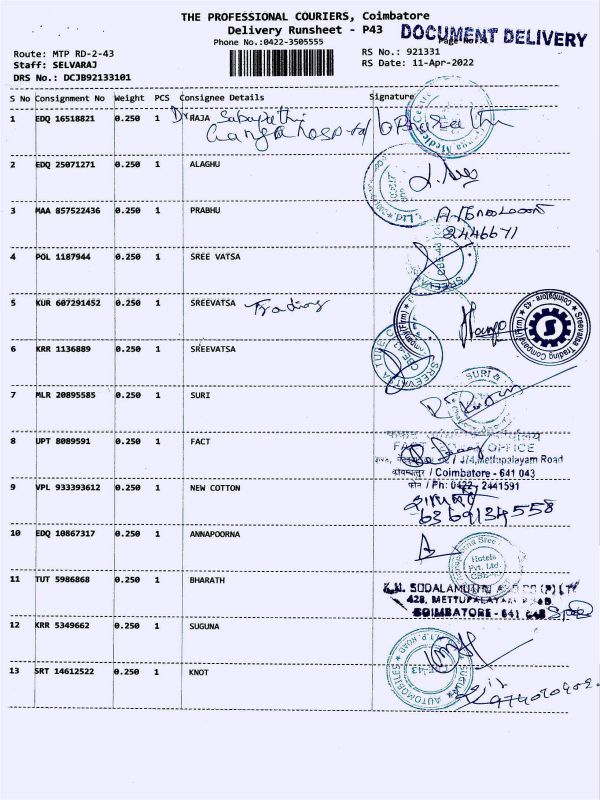 THE PROFESSIONAL COURIERS, Coimbatore
Delivery Runsheet - P43
DOCUMENT DELIVERY
Phone No.:0422-3505555
Page No
Route: MTP RD-2-43
RS No.: 921331
Staff: SELVARAJ
RS Date: 11-Apr-2022
DRS No.: DCJB92133101
S No Consignment No Weight PCS Consignee Details Signature
1 EDQ 16518821 0.250 1 Dr RAJA Sabapathi
Ganga hospital
2 EDQ 25071271 0.250 1 ALAGHU
3 MAA 857522436 0.250 1 PRABHU
2446671
4 POL 1187944 0.250 1 SREE VATSA
5 KUR 607291452 0.250 1 SREEVATSA Trading
Sreevatsa Trading Company(Firm) Coimbatore - 43
6 KRR 1136889 0.250 1 SREEVATSA
7 MLR 20895585 0.250 1 SURI
SURI &
8 UPT 8089591 0.250 1 FACT
FACT OFFICE
J/4, Mettupalayam Road
कोयम्बत्तूर / Coimbatore - 641 043
फोन / Ph: 0422 - 2441591
9 VPL 933393612 0.250 1 NEW COTTON
6369134558
10 EDQ 10867317 0.250 1 ANNAPOORNA
Hotels
Pvt. Ltd.
CBE-43
11 TUT 5986868 0.250 1 BHARATH
K.N. SODALAMUTHU AND CO (P) LTD
428, METTUPALAYAM ROAD
COIMBATORE - 641 043
12 KRR 5349662 0.250 1 SUGUNA
SUGUNA AUTOMOBILES
13 SRT 14612522 0.250 1 KNOT